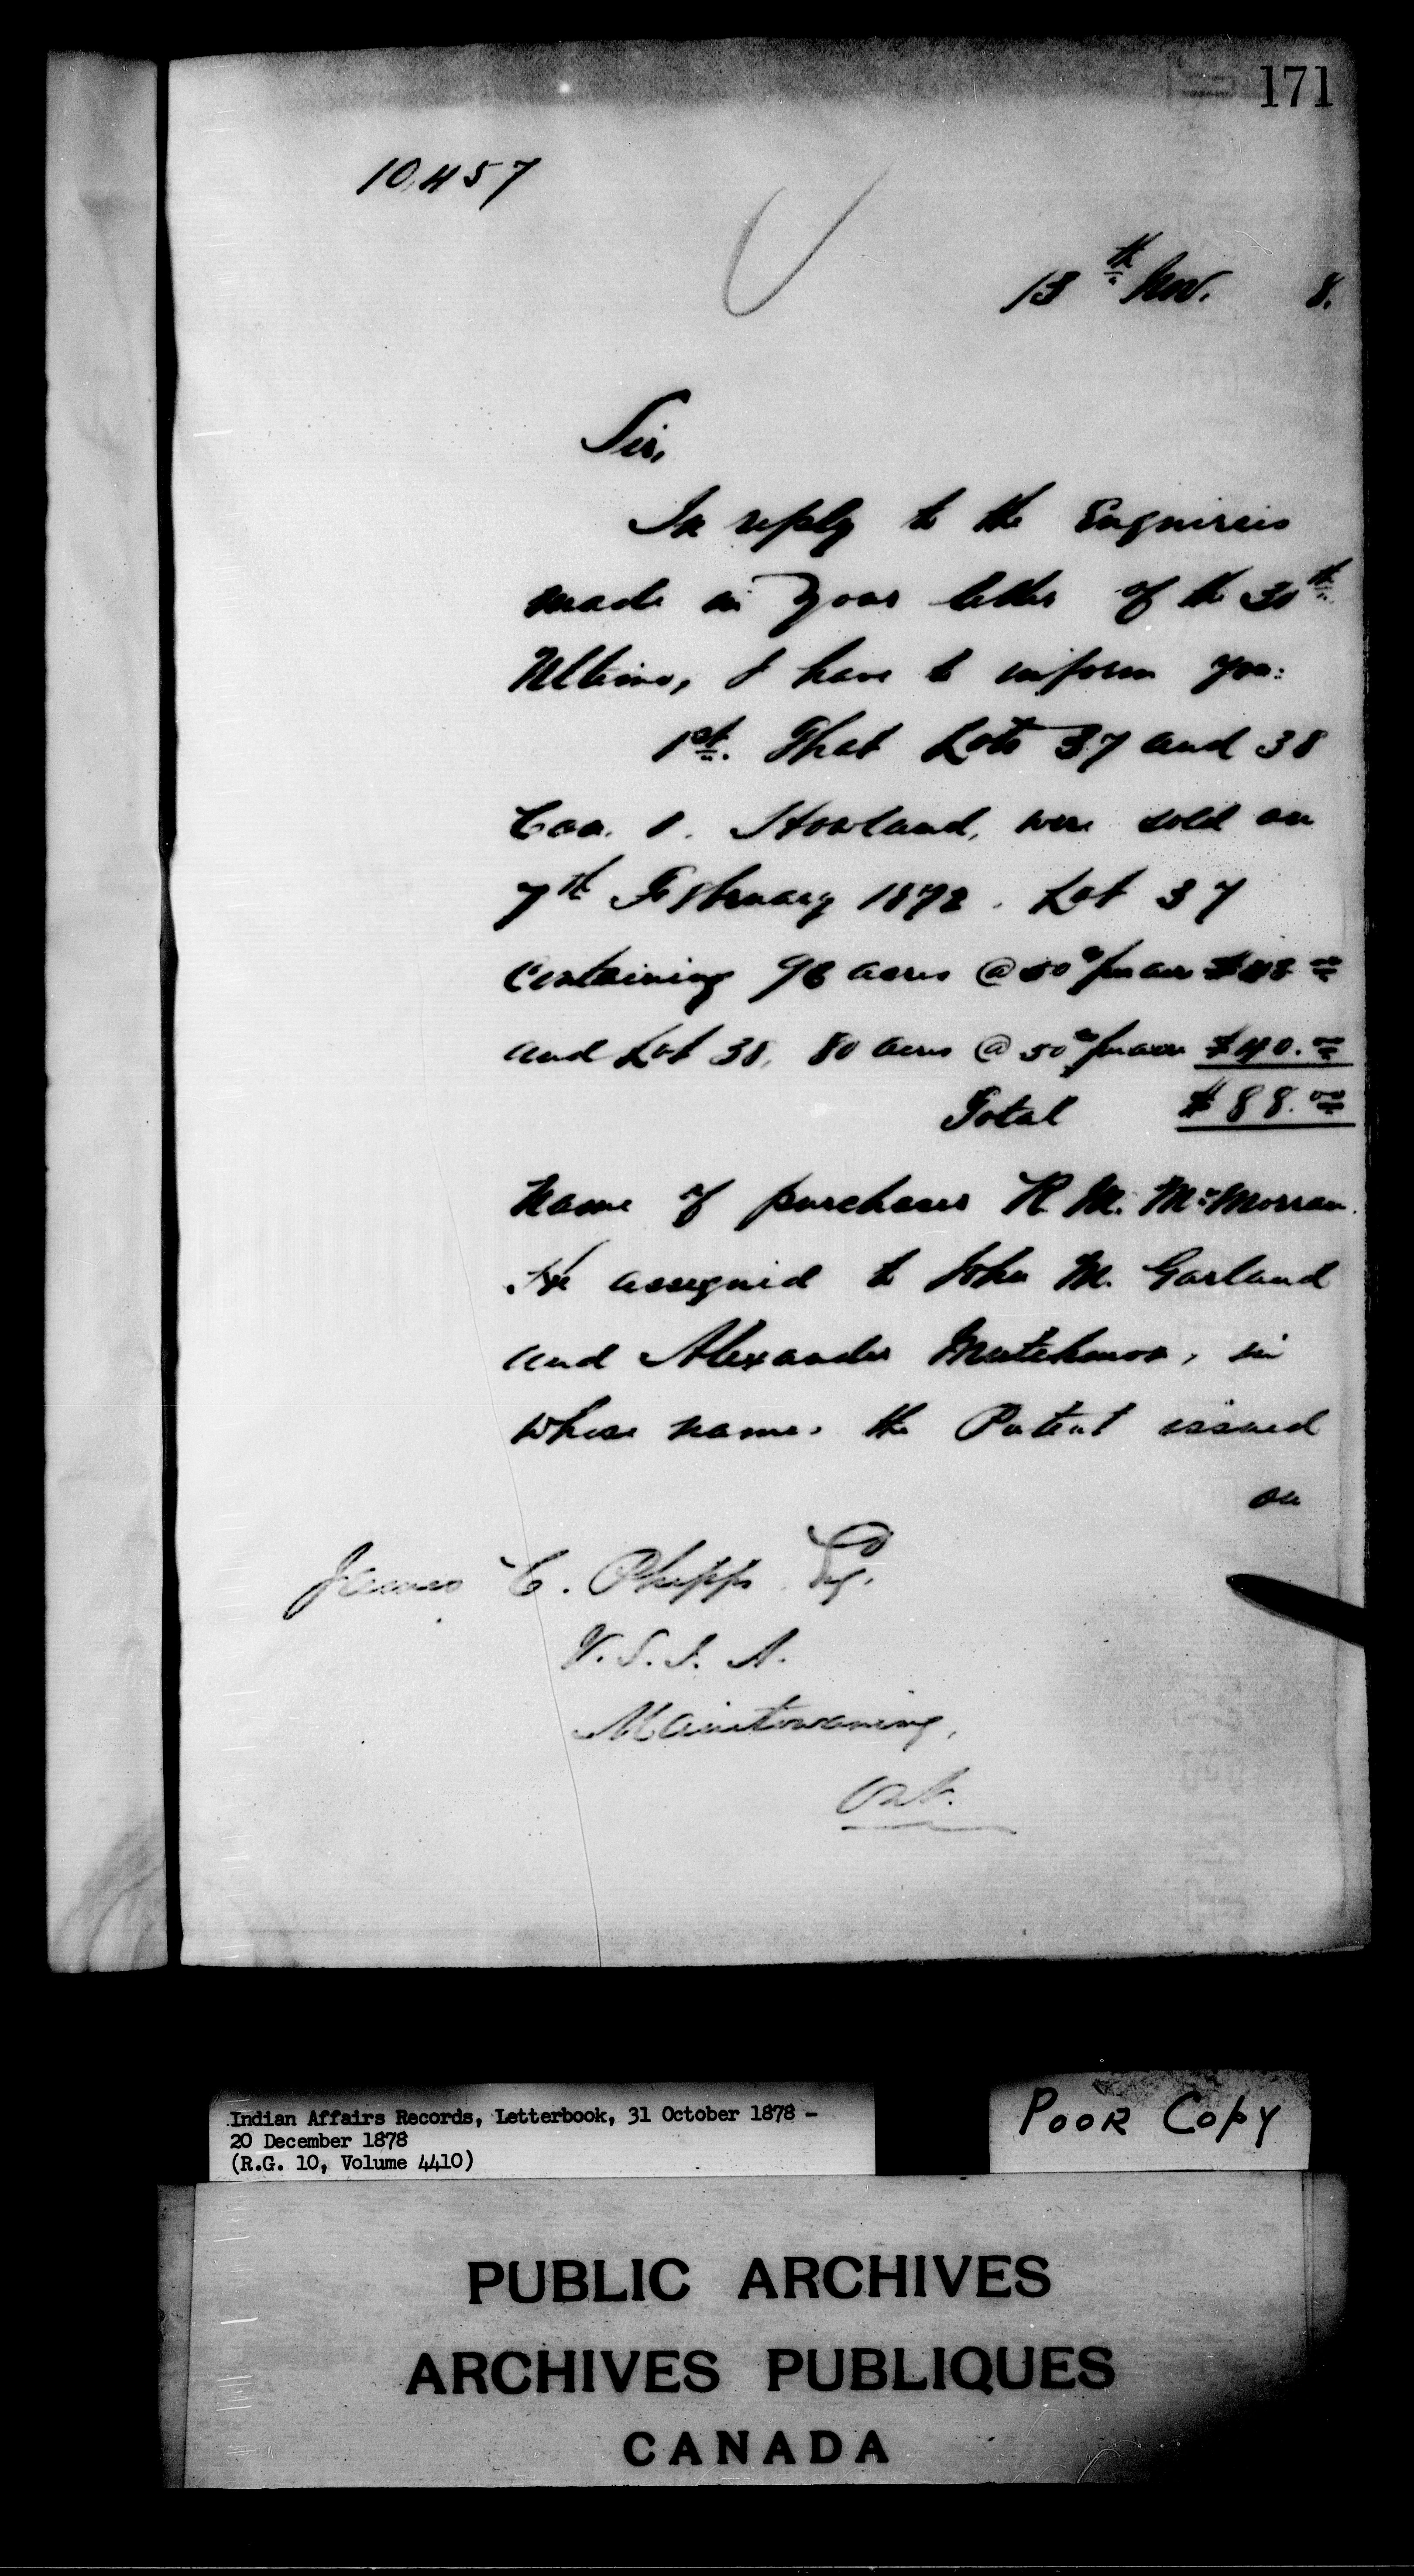 171
10,457
13th Nov. 8.
Sir,
In reply to the Enquiries
made in your letter of the 30th
Ultimo, I have to inform you:
1st. That Lots 37 and 38
Con. 1. Howland, were sold on
7th February 1872. Lot 37
Containing 96 acres @ 50c per acre $48.00
and Lot 38, 80 acres @ 50c per acre $40.00
Total $88.00
Name of purchaser R. M. McMorran.
He assigned to John M. Garland
and Alexander Mutchmor, in
whose names the Patent issued
on
James C. Phipps Esq.
V.S.I.A.
Manitowaning,
Ont.
Indian Affairs Records, Letterbook, 31 October 1878 -
20 December 1878
(R.G. 10, Volume 4410)
POOR COPY
PUBLIC ARCHIVES
ARCHIVES PUBLIQUES
CANADA